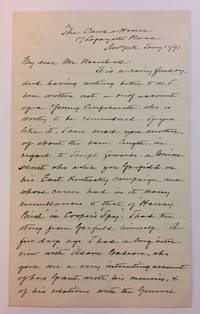 The Cavda House,
Lafayette Place.
New York Jany 11/91
My dear Mr. Marshall
It is a rainy Sunday,
and having nothing better to do I
have written out a brief account
of a young Confederate who is
worthy to be remembered. If you
like it, I can send you another,
of about the same length, in
regard to Joseph Edwards, a Union
secret who also for Garfield on
his East Kentucky campaign, and
whose career had in it many
resemblances to that of Harvey
Birch in Cooper's Spy. I had the
story from Garfield himself. A
few days ago I had a long inter-
view with Adam Badeau, who
gave me a very interesting account
of how Grant wrote his memoirs, &
of his relations with the General